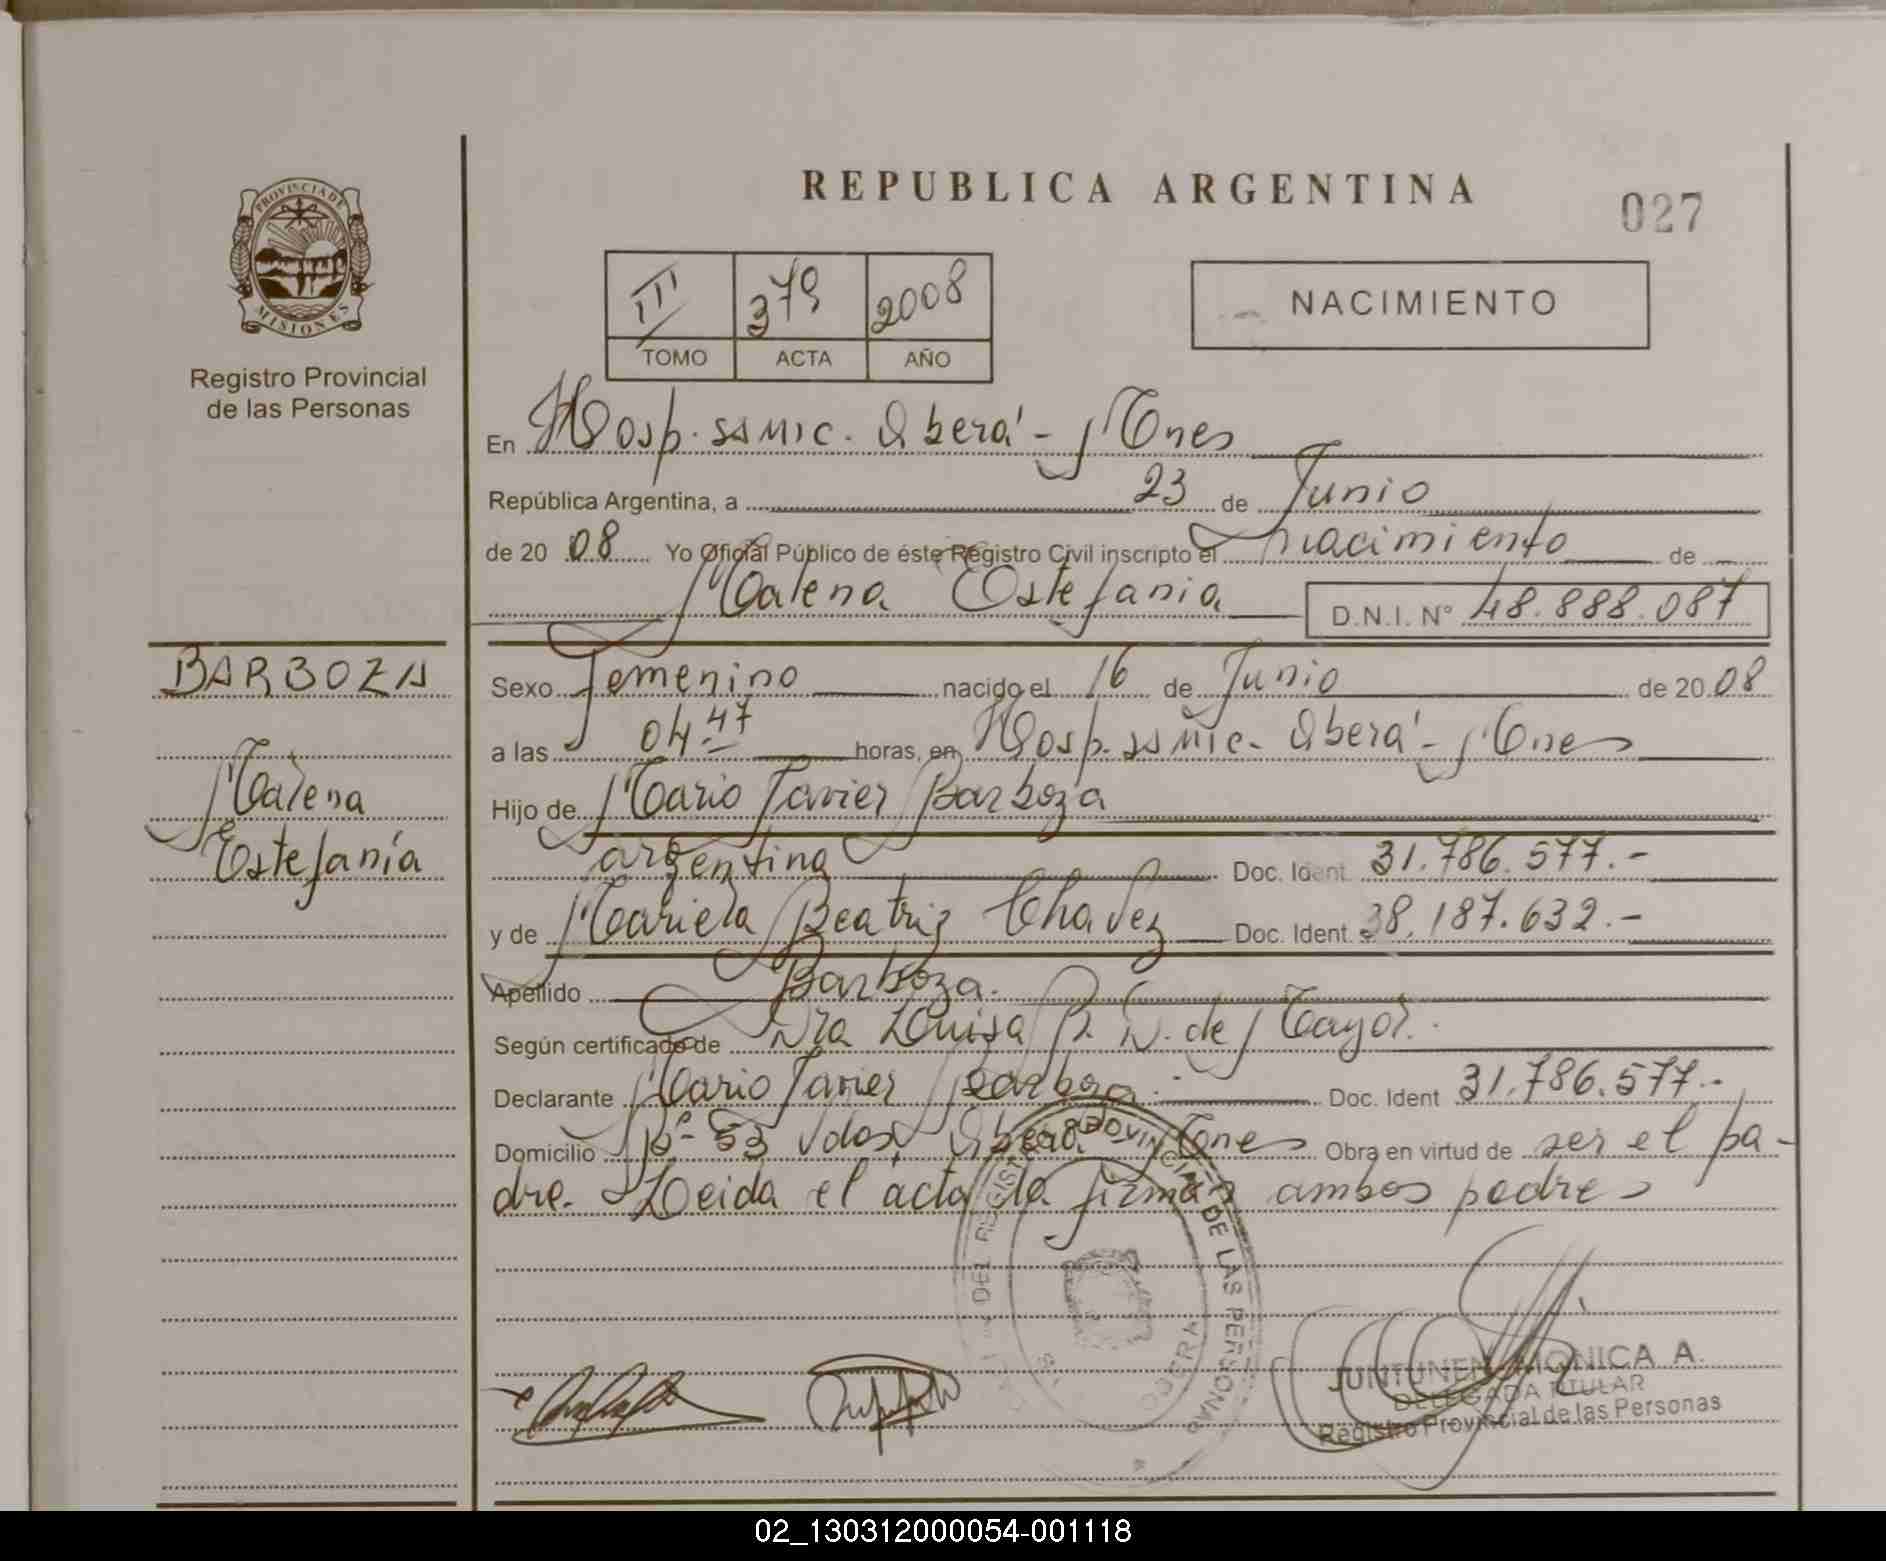 PROVINCIA DE
MISIONES
Registro Provincial
de las Personas
BARBOZA
Malena
Estefanía
REPUBLICA ARGENTINA
027
III 379 2008
TOMO ACTA AÑO
NACIMIENTO
En Hosp. SAMIC. Oberá - Mnes
República Argentina, a 23 de Junio
de 20 08 Yo Oficial Público de éste Registro Civil inscripto el nacimiento de
Malena Estefania D.N.I. N° 48.888.087
Sexo Femenino nacido el 16 de Junio de 20 08
a las 04:47 horas, en Hosp. SAMIC - Oberá - Mnes
Hijo de Mario Javier Barboza
argentino Doc. Ident. 31.786.577.-
y de Mariela Beatriz Chavez Doc. Ident. 38.187.632.-
Apellido Barboza.
Según certificado de Dra Luisa R. N. de Mayol.
Declarante Mario Javier Barboza.- Doc. Ident 31.786.577.-
Domicilio Bº- 53 Vdas, Oberá, Mnes Obra en virtud de ser el pa-
dre. Leida el acta la firman ambos padres
DEL REGISTRO PROVINCIAL DE LAS PERSONAS
OBERA
JUNTUNEN MONICA A.
DELEGADA TITULAR
Registro Provincial de las Personas
02_130312000054-001118